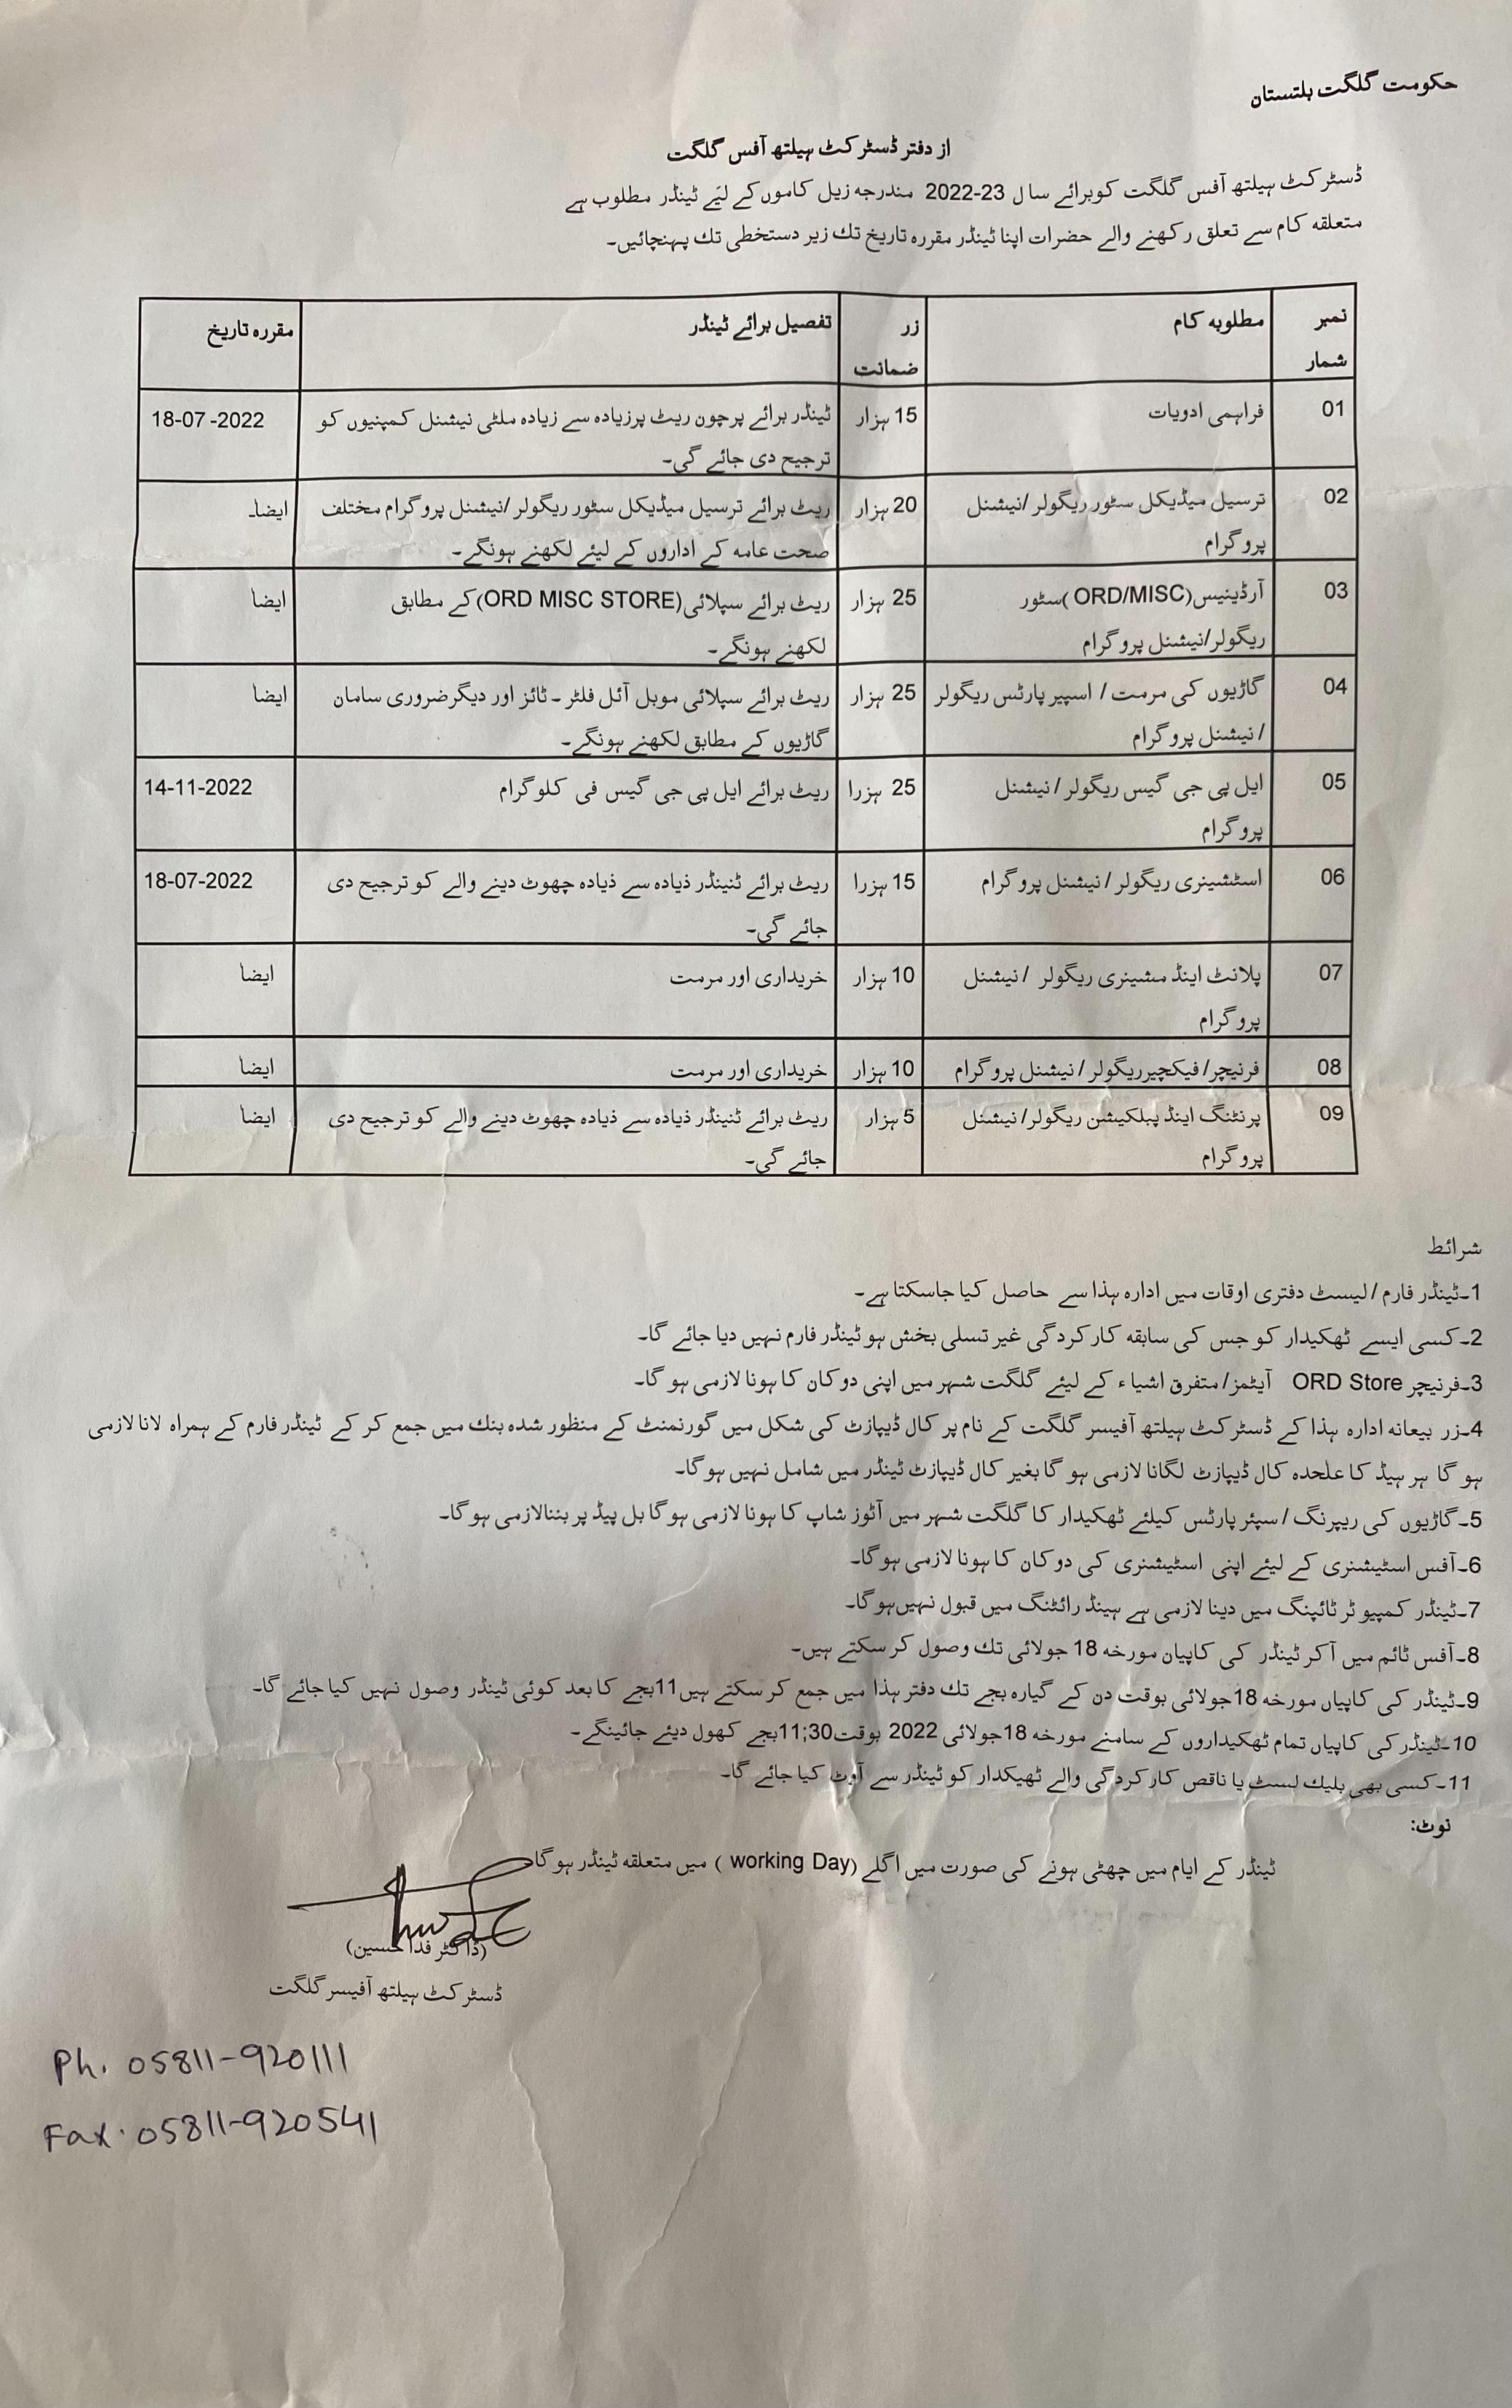 حکومت گلگت بلتستان
از دفتر ڈسٹرکٹ ہیلتھ آفس گلگت
ڈسٹرکٹ ہیلتھ آفس گلگت کوبرائے سال 23-2022 مندرجہ زیل کاموں کے لیَے ٹینڈر مطلوب ہے
متعلقہ کام سے تعلق رکھنے والے حضرات اپنا ٹینڈر مقررہ تاریخ تك زیر دستخطی تك پہنچائیں۔
نمبر شمار | مطلوبہ کام | زر ضمانت | تفصیل برائے ٹینڈر | مقررہ تاریخ
01 | فراہمی ادویات | 15 ہزار | ٹینڈر برائے پرچون ریٹ پرزیادہ سے زیادہ ملٹی نیشنل کمپنیوں کو ترجیح دی جائے گی۔ | 18-07 -2022
02 | ترسیل میڈیکل سٹور ریگولر /نیشنل پروگرام | 20 ہزار | ریٹ برائے ترسیل میڈیکل سٹور ریگولر /نیشنل پروگرام مختلف صحت عامہ کے اداروں کے لیئے لکھنے ہونگے۔ | ایضا۔
03 | آرڈینیس(ORD/MISC )سٹور ریگولر/نیشنل پروگرام | 25 ہزار | ریٹ برائے سپلائی(ORD MISC STORE)کے مطابق لکھنے ہونگے۔ | ایضا
04 | گاڑیوں کی مرمت / اسپیر پارٹس ریگولر / نیشنل پروگرام | 25 ہزار | ریٹ برائے سپلائی موبل آئل فلٹر ۔ ٹائز اور دیگرضروری سامان گاڑیوں کے مطابق لکھنے ہونگے۔ | ایضا
05 | ایل پی جی گیس ریگولر / نیشنل پروگرام | 25 ہزرا | ریٹ برائے ایل پی جی گیس فی کلوگرام | 14-11-2022
06 | اسٹشینری ریگولر / نیشنل پروگرام | 15 ہزرا | ریٹ برائے ٹنینڈر ذیادہ سے ذیادہ چھوٹ دینے والے کو ترجیح دی جائے گی۔ | 18-07-2022
07 | پلانٹ اینڈ مشینری ریگولر / نیشنل پروگرام | 10 ہزار | خریداری اور مرمت | ایضا
08 | فرنیچر/ فیکچیرریگولر / نیشنل پروگرام | 10 ہزار | خریداری اور مرمت | ایضا
09 | پرنٹنگ اینڈ پبلکیشن ریگولر/ نیشنل پروگرام | 5 ہزار | ریٹ برائے ٹنینڈر ذیادہ سے ذیادہ چھوٹ دینے والے کو ترجیح دی جائے گی۔ | ایضا
شرائط
1۔ٹینڈر فارم / لیسٹ دفتری اوقات میں ادارہ ہذا سے حاصل کیا جاسکتا ہے۔
2۔کسی ایسے ٹھکیدار کو جس کی سابقہ کارکردگی غیر تسلی بخش ہو ٹینڈر فارم نہیں دیا جائے گا۔
3۔فرنیچر ORD Store آیٹمز/ متفرق اشیاء کے لیئے گلگت شہر میں اپنی دوکان کا ہونا لازمی ہو گا۔
4۔زر بیعانہ ادارہ ہذا کے ڈسٹرکٹ ہیلتھ آفیسر گلگت کے نام پر کال ڈیپازٹ کی شکل میں گورنمنٹ کے منظور شدہ بنك میں جمع کر کے ٹینڈر فارم کے ہمراہ لانا لازمی
ہو گا ہر ہیڈ کا علٰحدہ کال ڈیپازٹ لگانا لازمی ہو گا بغیر کال ڈیپازٹ ٹینڈر میں شامل نہیں ہوگا۔
5۔گاڑیوں کی ریپرنگ / سپئر پارٹس کیلئے ٹھکیدار کا گلگت شہر میں آٹوز شاپ کا ہونا لازمی ہوگا بل پیڈ پر بننالازمی ہوگا۔
6۔آفس اسٹیشنری کے لیئے اپنی اسٹیشنری کی دوکان کا ہونا لازمی ہوگا۔
7۔ٹینڈر کمپیو ٹر ٹائپنگ میں دینا لازمی ہے ہینڈ رائٹنگ میں قبول نہیں ہوگا۔
8۔آفس ٹائم میں آکر ٹینڈر کی کاپیان مورخہ 18 جولائی تك وصول کر سکتے ہیں۔
9۔ٹینڈر کی کاپیاں مورخہ 18جولائی بوقت دن کے گیارہ بجے تك دفتر ہذا میں جمع کر سکتے ہیں11بجے کا بعد کوئی ٹینڈر وصول نہیں کیا جائے گا۔
10۔ٹینڈر کی کاپیاں تمام ٹھکیداروں کے سامنے مورخہ 18جولائی 2022 بوقت11;30بجے کھول دیئے جائینگے۔
11۔کسی بھی بلیك لسٹ یا ناقص کارکردگی والے ٹھیکدار کو ٹینڈر سے آوٹ کیا جائے گا۔
نوٹ:
ٹینڈر کے ایام میں چھٹی ہونے کی صورت میں اگلے (working Day ) میں متعلقہ ٹینڈر ہوگا
(ڈاکٹر فدا حسین)
ڈسٹرکٹ ہیلتھ آفیسر گلگت
Ph. 05811-920111
Fax. 05811-920541